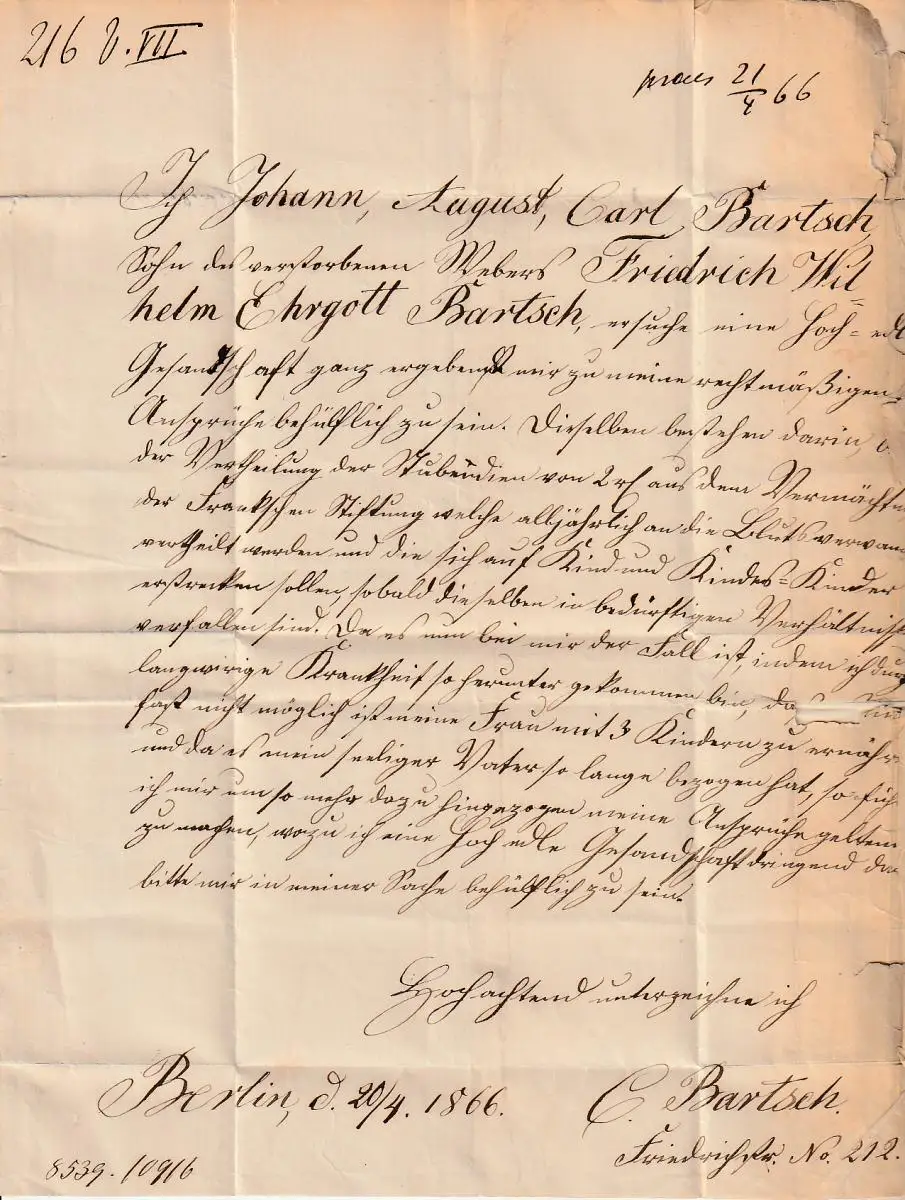 216 v. VII
praes 21/4 66
Ich Johann, August, Carl Bartsch,
Sohn des verstorbenen Webers Friedrich Wil-
helm Ehrgott Bartsch, ersuche eine Hoch=edl
Gesandschaft ganz ergebenst mir zu meine rechtmäßigen
Ansprüche behülflich zu sein. Dieselben bestehen darin,
der Vertheilung der Stubendien von 2 rℓ aus dem Vermächtn
der Frankschen Stiftung welche alljährlich an die Blutsverwan
vertheilt werden und die sich auf Kind und Kindes=Kinder
erstrecken sollen, sobald dieselben in bedürftigen Verhältniss
verfallen sind. Da es nun bei mir der Fall ist, indem ich durch
langwirige Krankheit so herunter gekommen bin, das
fast nicht möglich ist meine Frau mit 3 Kindern zu ernähr
und da es mein seeliger Vater so lange bezogen hat, so füh
ich mir um so mehr dazu hingezogen meine Ansprüche geltend
zu machen, wozu ich eine Hoch edle Gesandschaft dringend da
bitte mir in meiner Sache behülflich zu sein.
Hochachtend unterzeichne ich
Berlin, d. 20/4. 1866.
C. Bartsch.
Friedrichstr. No. 212.
8539. 10916